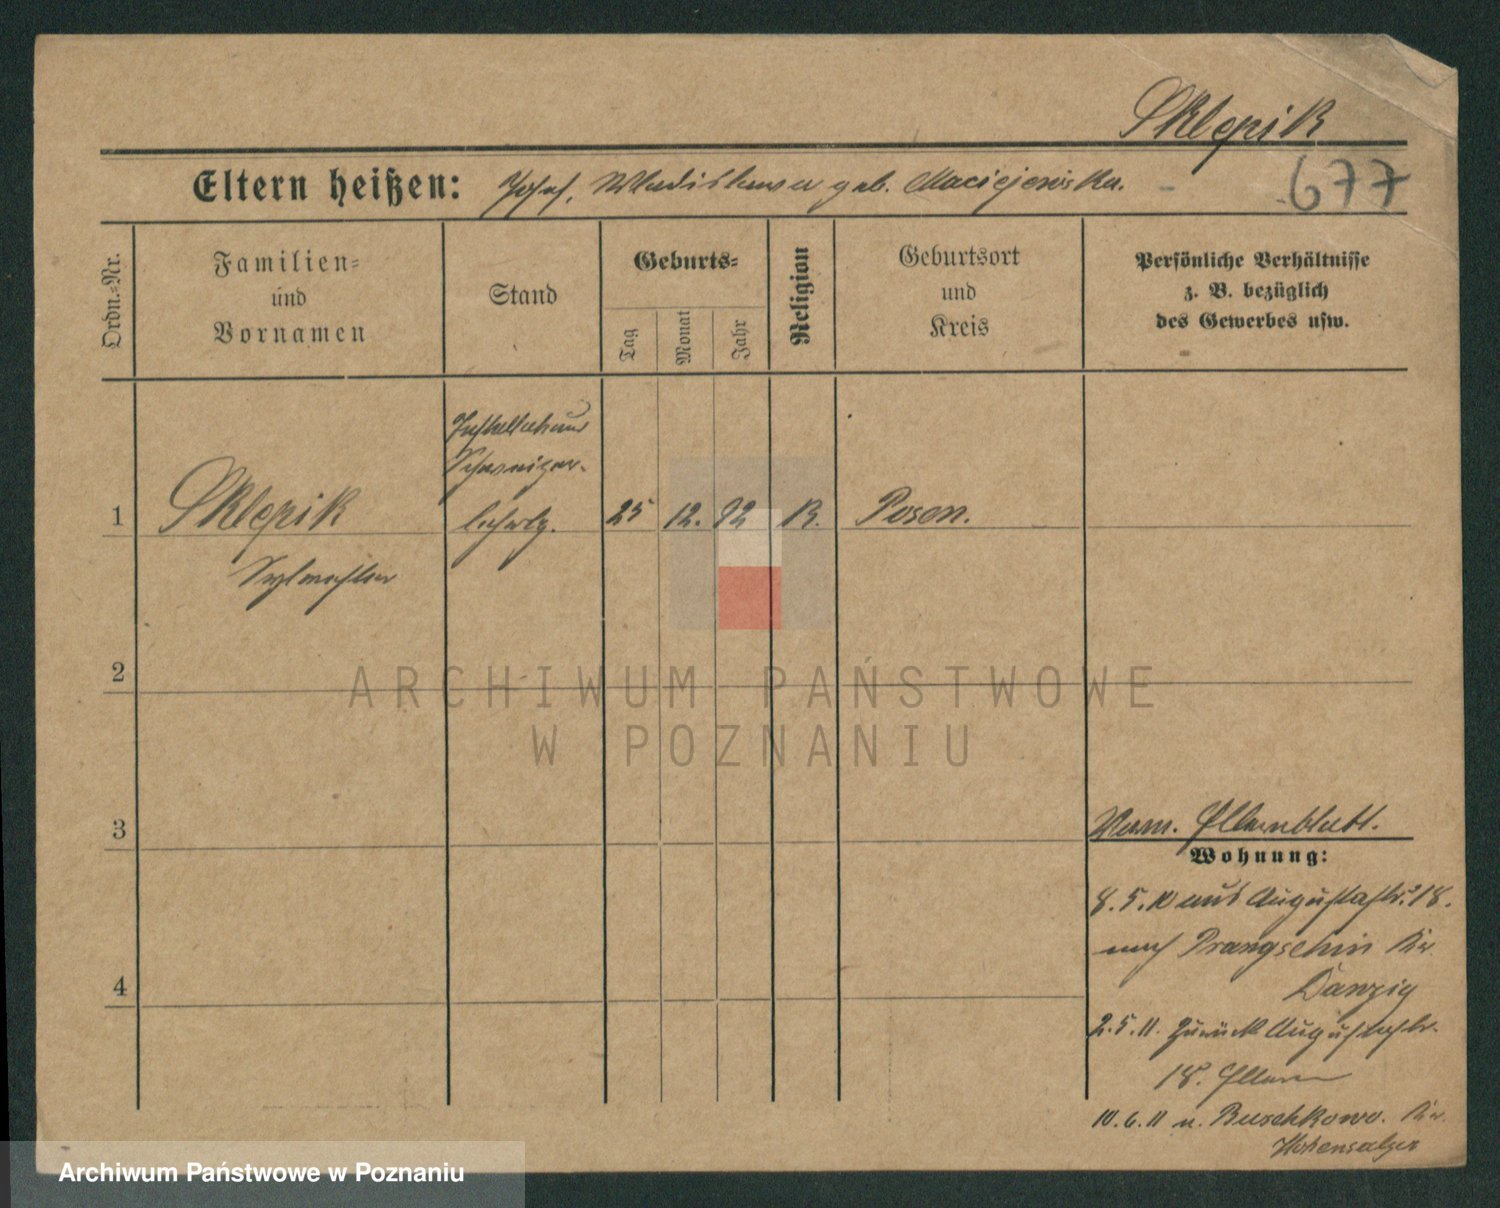 Sklepik
Eltern heißen: Josef, Wladislawa geb. Maciejewska.
677
Ordn.=Nr.
Familien=
und
Vornamen
Stand
Geburts=
Tag
Monat
Jahr
Religion
Geburtsort
und
Kreis
Persönliche Verhältnisse
z. B. bezüglich
des Gewerbes usw.
1 Sklepik 25 12. 92 Posen.
Sylvester
2
3
4
ARCHIWUM PAŃSTWOWE
W POZNANIU
Elternblatt.
Wohnung:
8. 5. 10 aus Augustastr. 18.
nach Prangschin Kr.
Danzig
2. 5. 11. zurück Augustastr.
18. Eltern
10. 6. 11 n. Buschkowo. Kr.
Hohensalza
Archiwum Państwowe w Poznaniu